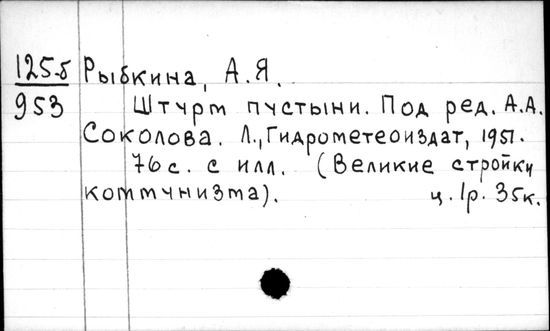 125б Рыбкина, А.Я.
953 Штурм пустыни. Под ред. А.А.
Соколова. Л., Гидрометеоиздат, 1951.
76 с. с илл. (Великие стройки
коммунизма). ц. 1р. 35к.